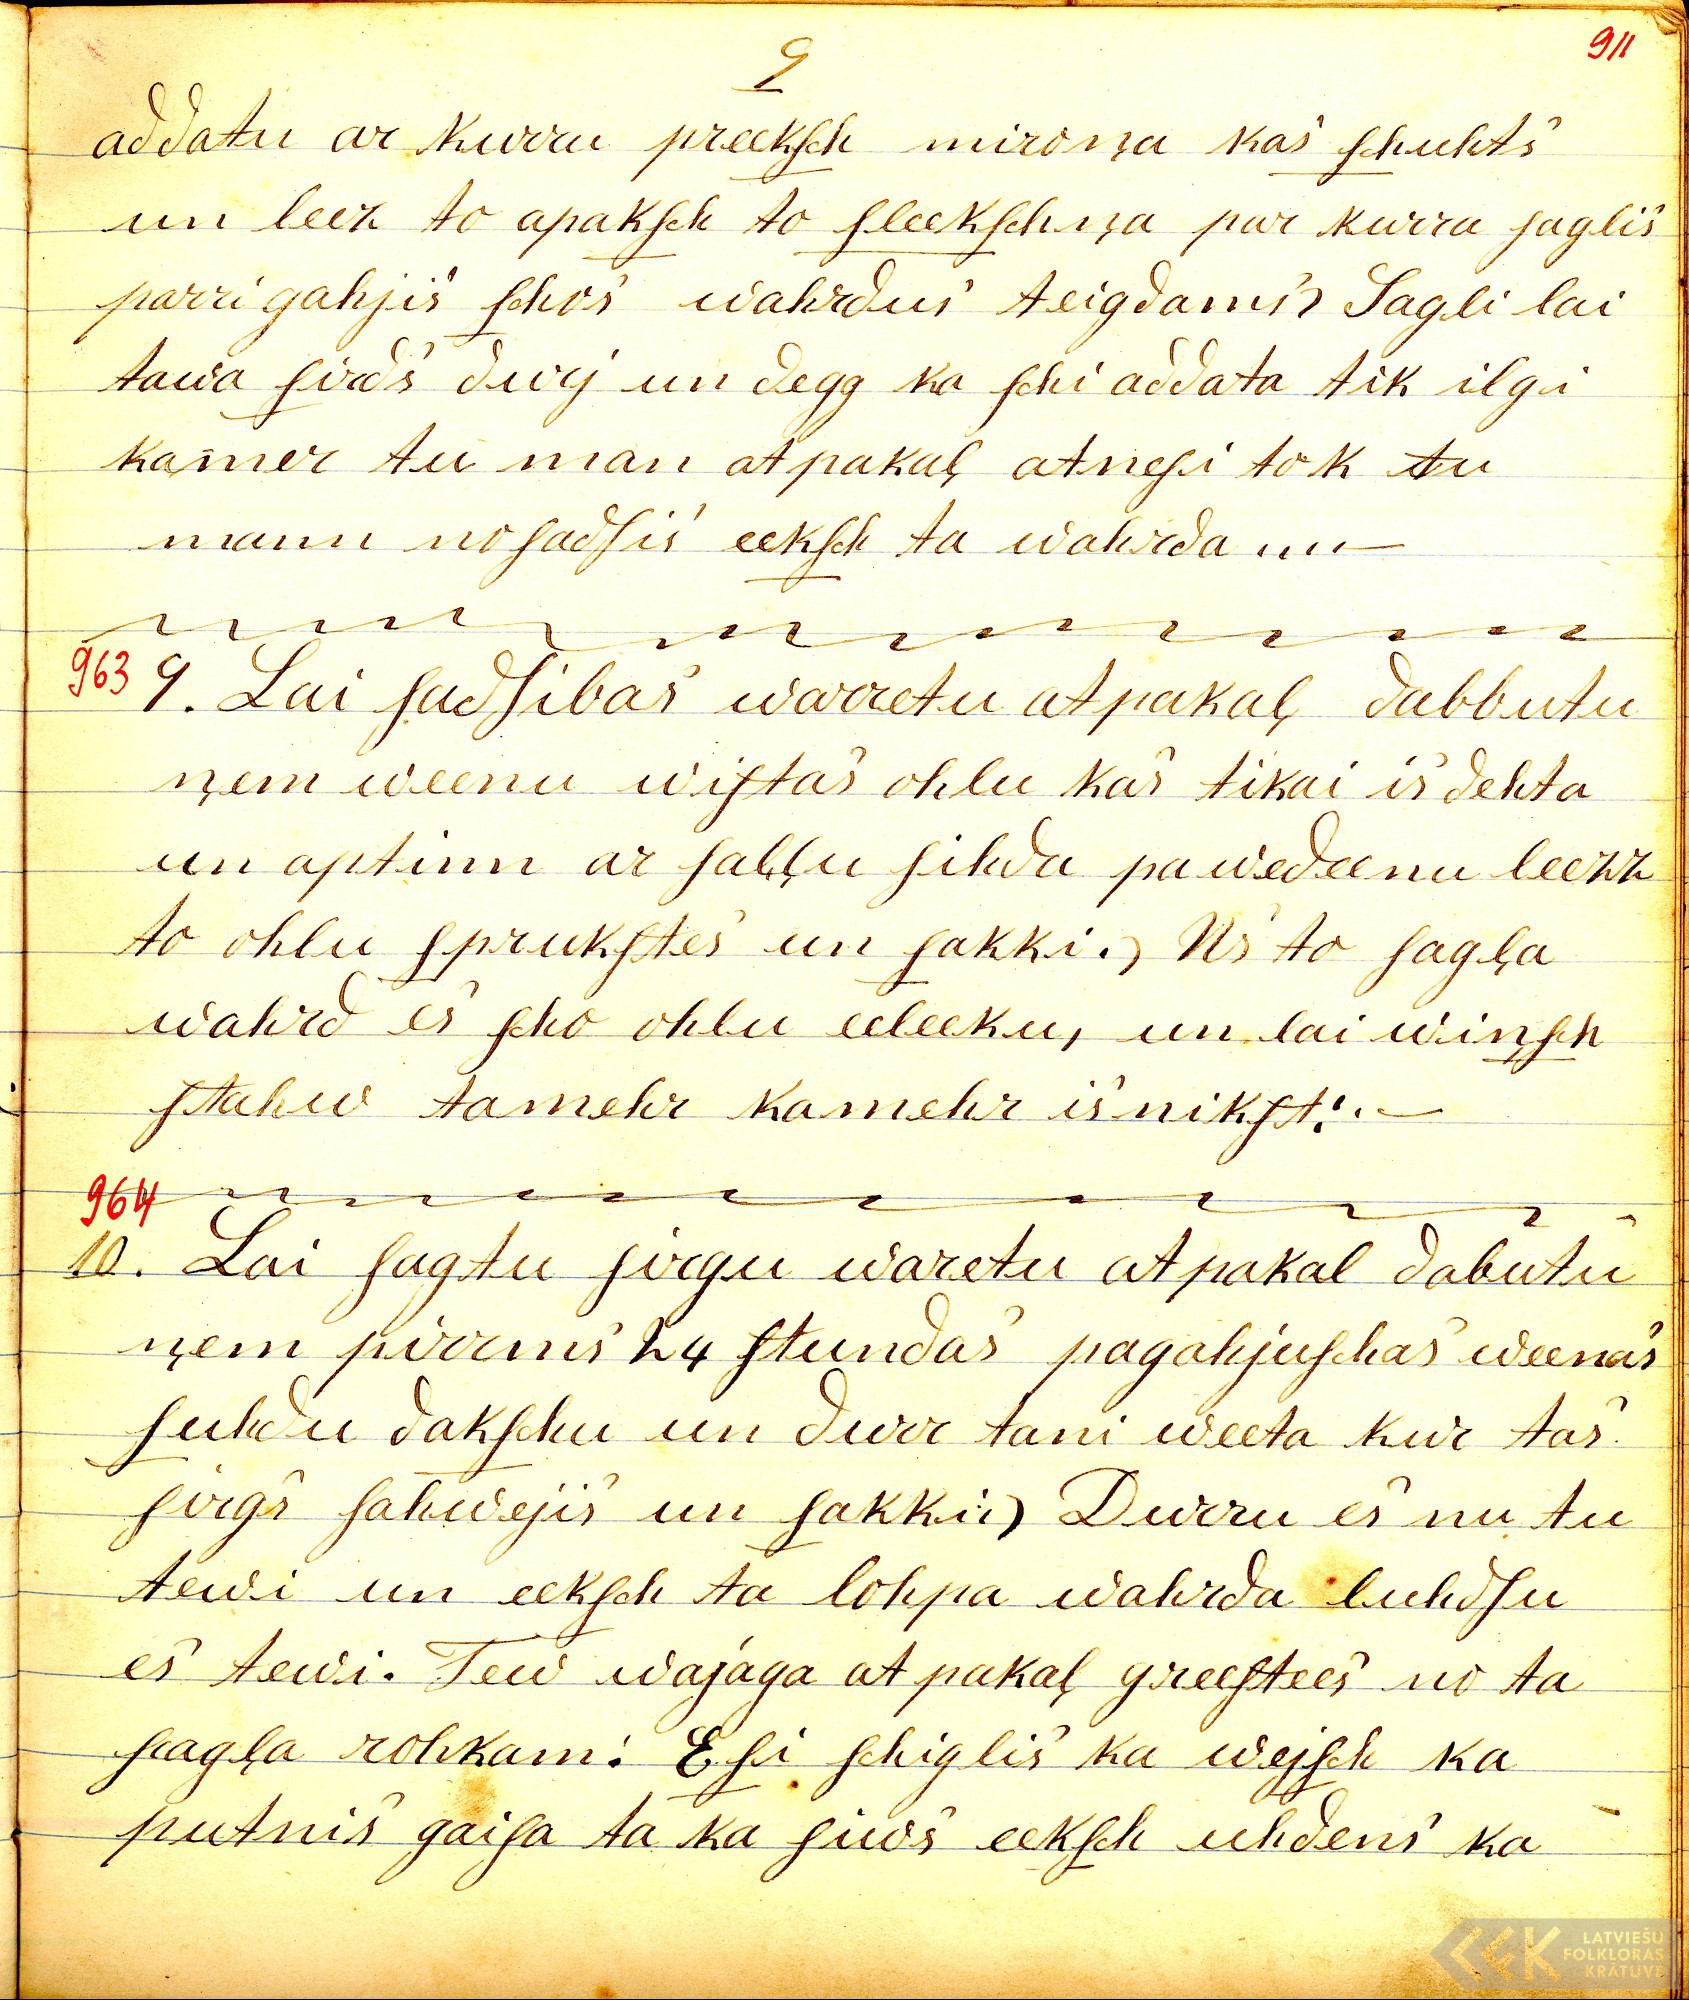 9
911
addatu ar kurru preekſch miroņa kas ſchuhts
un leek to apakſch to ſleekſchņa par kurra ſaglis
parri gahjis ſchos wahrdus teigdams) Sagli lai
tawa ſirds dwej un degg ka ſchi addata tik ilgi
kamer tu man atpakaļ atneſi tok tu
mann noſadſis eekſch ta wahrda „„—
963 9. Lai ſadſibas warretu atpakaļ dabbutu
ņem weenu wiſtas ohlu kas tikai is dehta
un aptinn ar ſaļļu ſihda pawedeenu leekk
to ohlu ſprukſtes un ſakki.) Us to ſagļa
wahrd es ſcho ohlu eeleeku, un lai wiņſch
ſtahw tamehr kamehr isnikſt!.—
964
10. Lai ſagtu ſirgu waretu atpakal dabutu
ņem pirrms 24 ſtundas pagahjuſchas weenas
ſuhdu dakſchu un durr tani weeta kur tas
ſirgs ſahwejis un ſakki:) Durru es nu tu
tewi un eekſch ta lohpa wahrda luhdſu
es tewi. Tew wajaga atpakaļ greeſtees no ta
ſagļa rohkam: Eſi ſchiglis ka wejſch ka
putnis gaiſa ta ka ſiws eekſch uhdens ka
LATVIEŠU
FOLKLORAS
KRĀTUVE